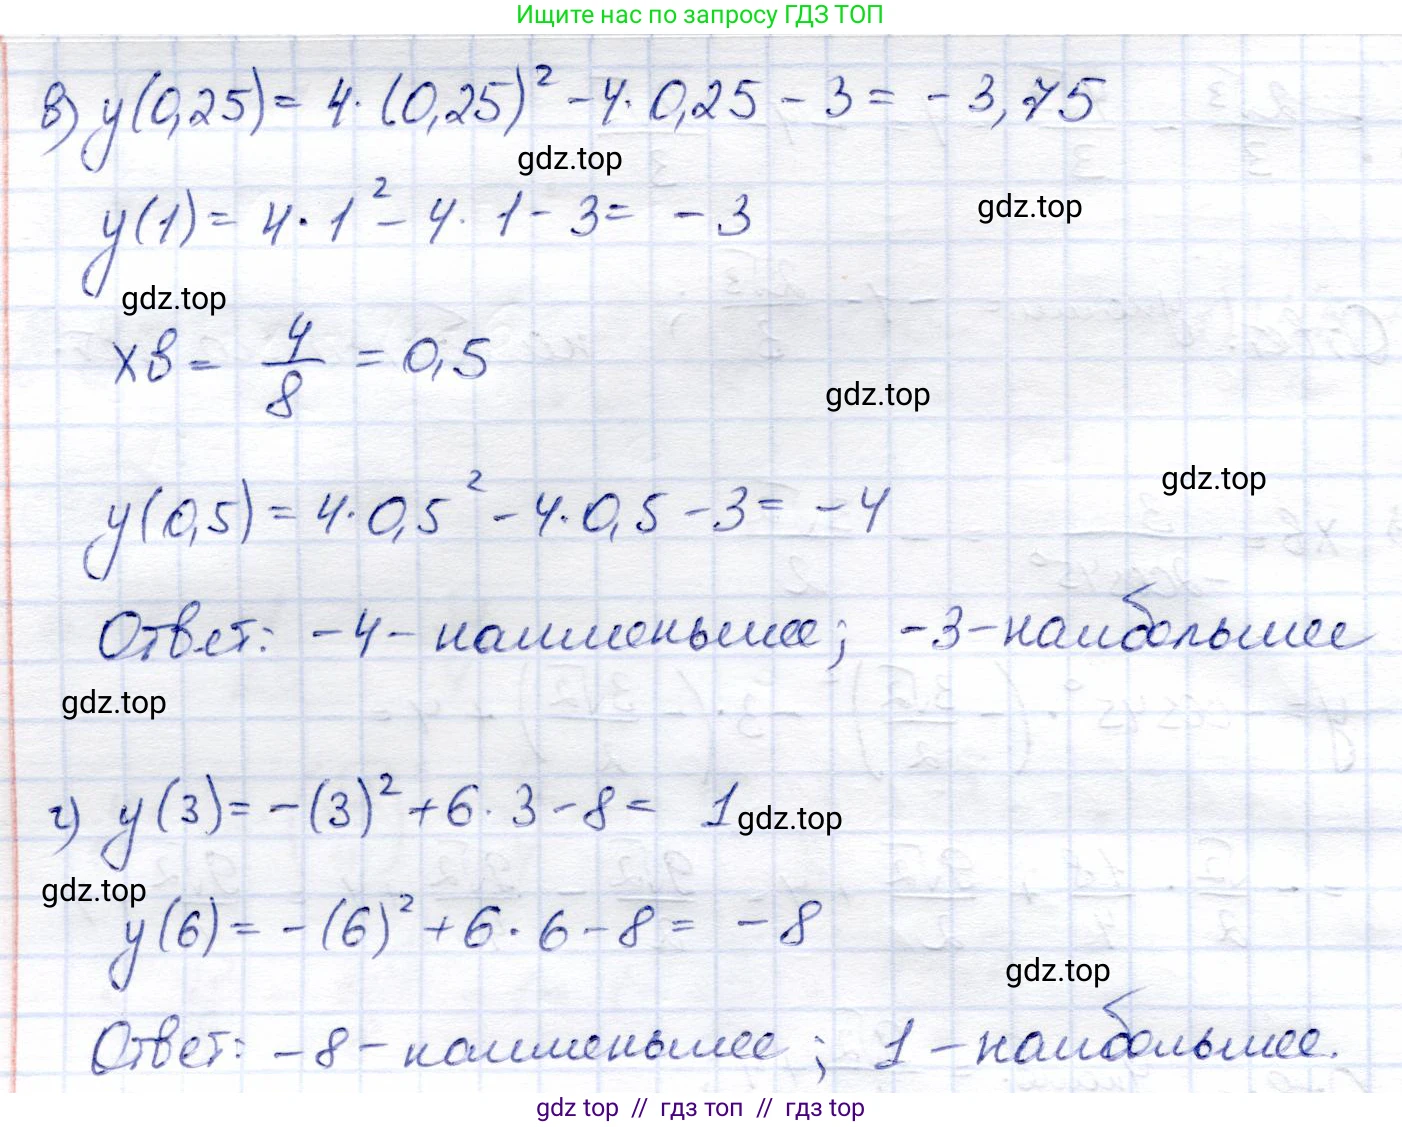 Ищите нас по запросу ГДЗ ТОП
в) y(0,25) = 4·(0,25)² - 4·0,25 - 3 = -3,75
gdz.top
y(1) = 4·1² - 4·1 - 3 = -3
gdz.top
gdz.top
xв = 4/8 = 0,5
gdz.top
gdz.top
y(0,5) = 4·0,5² - 4·0,5 - 3 = -4
Ответ: -4 - наименьшее; -3 - наибольшее
gdz.top
г) y(3) = -(3)² + 6·3 - 8 = 1
gdz.top
gdz.top
y(6) = -(6)² + 6·6 - 8 = -8
gdz.top
Ответ: -8 - наименьшее; 1 - наибольшее.
gdz top // гдз топ // гдз top